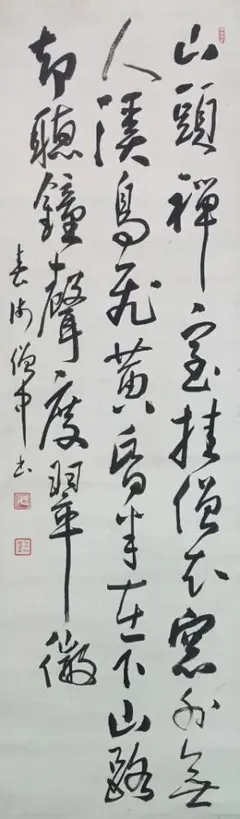 山頭禪室挂僧衣窓外無
人溪鳥飛黃昏半在下山路
却聽鐘聲度翠微